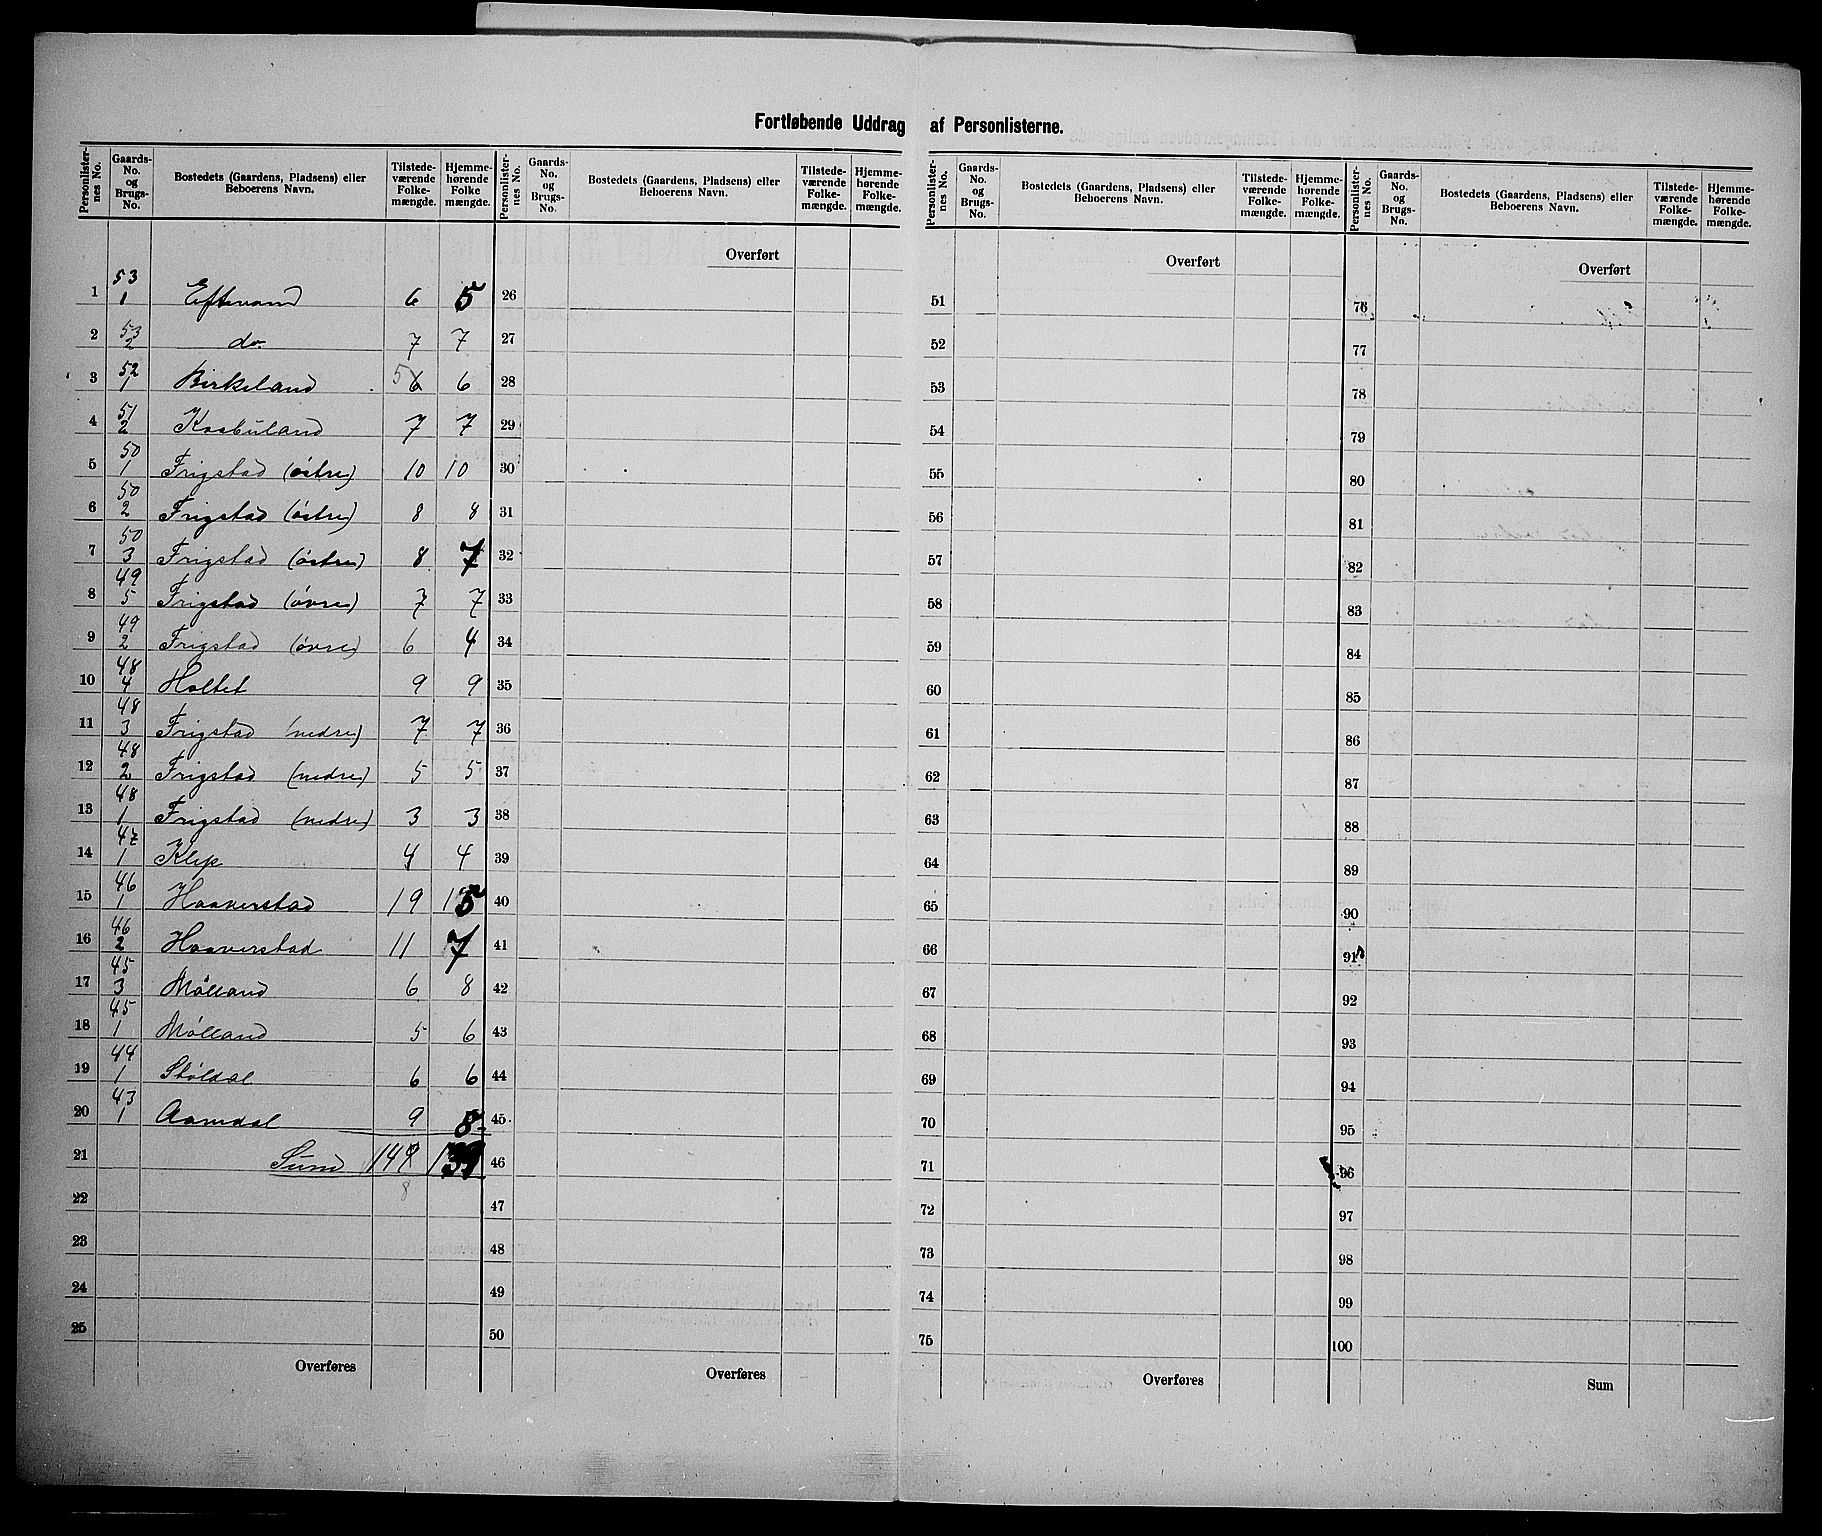 Fortløbende Uddrag af Personlisterne.
Personlisternes No. | Gaards-No. og Brugs-No. | Bostedets (Gaardens, Pladsens) eller Beboerens Navn. | Tilstedeværende Folkemængde. | Hjemmehørende Folkemængde.
1 53/1 Eftevand 6 5
2 53/2 do 7 7
3 52/1 Birkeland 5 6 6
4 51/2 7 7
5 50/1 Frigstad (östre) 10 10
6 50/2 Frigstad (östre) 8 8
7 50/3 Frigstad (östre) 8 7
8 49/5 Frigstad (övre) 7 7
9 49/2 Frigstad (övre) 6 4
10 48/4 Holtet 9 9
11 48/3 Frigstad (nedre) 7 7
12 48/2 Frigstad (nedre) 5 5
13 48/1 Frigstad (nedre) 3 3
14 47/1 Klep 4 4
15 46/1 Haaverstad 19 15
16 46/2 Haaverstad 11 7
17 45/3 Mölland 6 8
18 45/1 Mölland 5 6
19 44/1 Stöldal 6 6
20 43/1 Aamdal 9 8
21 Sum 149 139
22 8
23
24
25
Overføres
Personlisternes No. | Gaards-No. og Brugs-No. | Bostedets (Gaardens, Pladsens) eller Beboerens Navn. | Tilstedeværende Folkemængde. | Hjemmehørende Folkemængde.
Overført
26
27
28
29
30
31
32
33
34
35
36
37
38
39
40
41
42
43
44
45
46
47
48
49
50
Overføres
Personlisternes No. | Gaards-No. og Brugs-No. | Bostedets (Gaardens, Pladsens) eller Beboerens Navn. | Tilstedeværende Folkemængde. | Hjemmehørende Folkemængde.
Overført
51
52
53
54
55
56
57
58
59
60
61
62
63
64
65
66
67
68
69
70
71
72
73
74
75
Overføres
Personlisternes No. | Gaards-No. og Brugs-No. | Bostedets (Gaardens, Pladsens) eller Beboerens Navn. | Tilstedeværende Folkemængde. | Hjemmehørende Folkemængde.
Overført
76
77
78
79
80
81
82
83
84
85
86
87
88
89
90
91
92
93
94
95
96
97
98
99
100
Sum